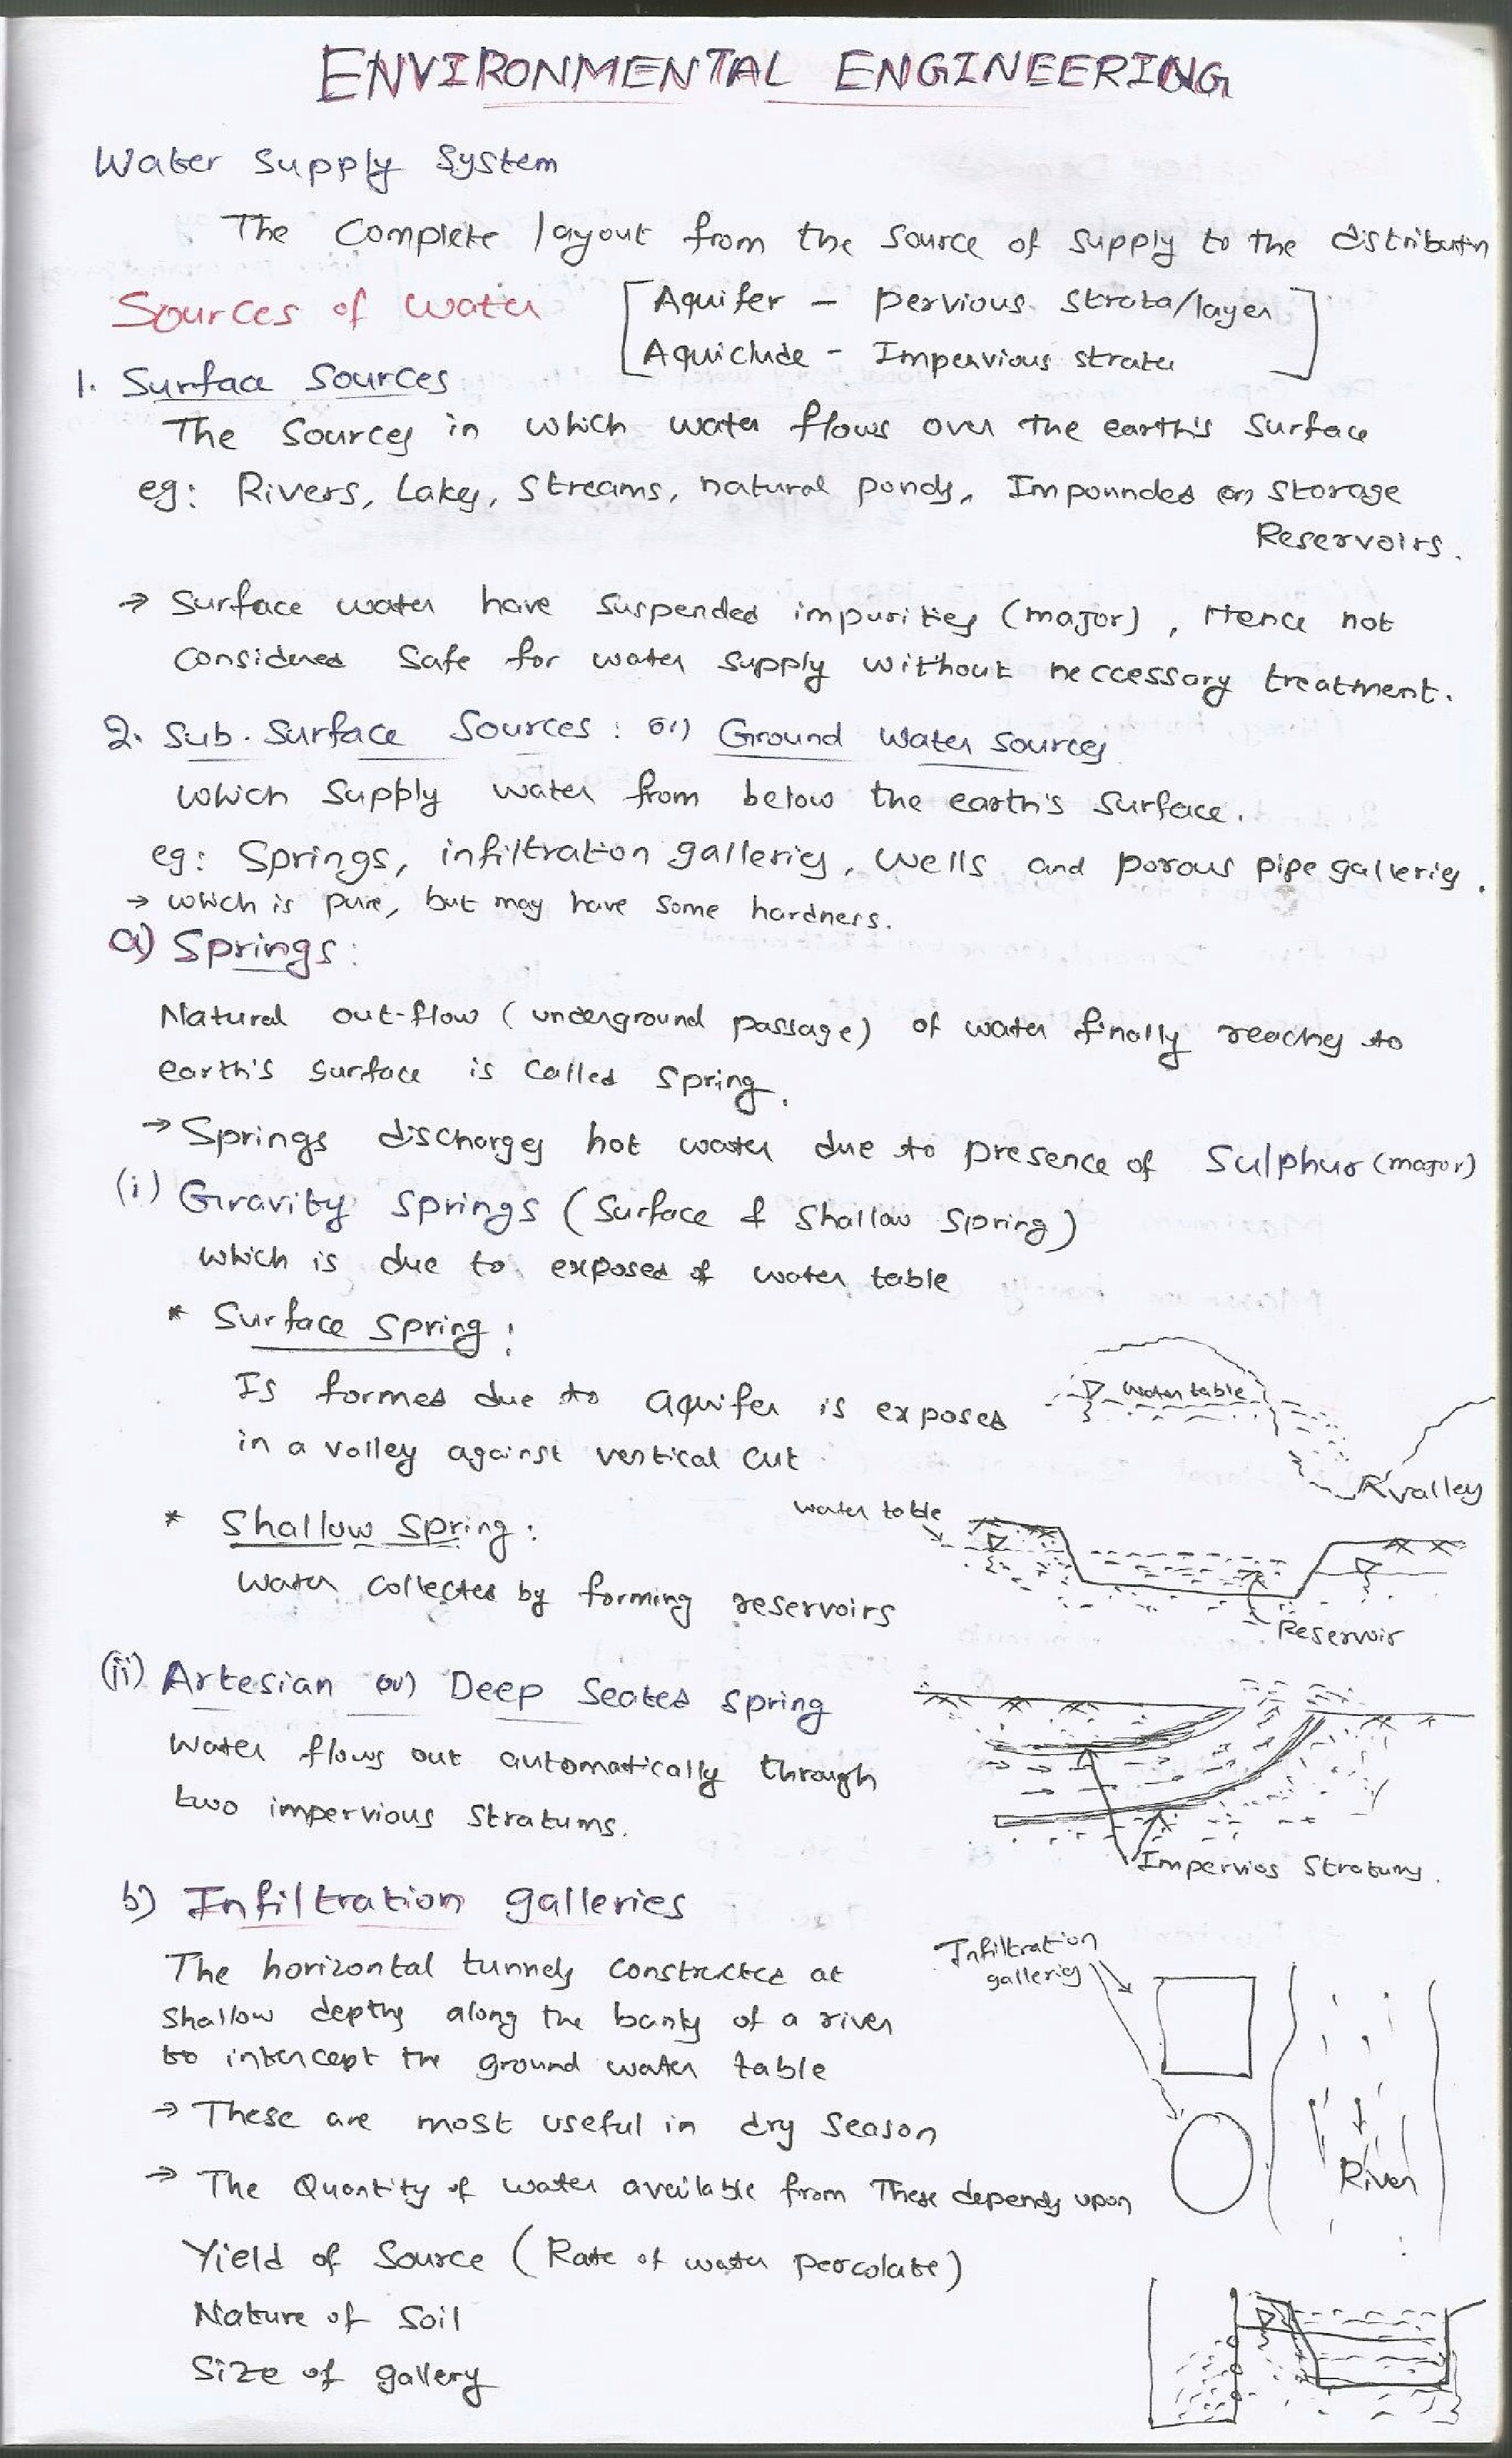 ENVIRONMENTAL ENGINEERING
Water Supply System
The Complete layout from the source of supply to the distributn
Sources of water [Aquifer - pervious strata/layer
Aquiclude - Impervious strata]
1. Surface Sources
The Sources in which water flows over the earth's surface
eg: Rivers, Lakes, Streams, natural ponds, Impounded (or) Storage
Reservoirs.
→ Surface water have suspended impurities (major), Hence not
considered safe for water supply without neccessary treatment.
2. Sub-surface Sources: or) Ground Water Sources
which supply water from below the earth's surface.
eg: Springs, infiltration galleries, wells and porous pipe galleries.
→ which is pure, but may have some hardness.
a) Springs:
Natural out-flow (underground passage) of water finally reaches to
earth's surface is called spring.
→ Springs discharges hot water due to presence of Sulphur (major)
(i) Gravity springs (Surface & Shallow Spring)
which is due to exposed of water table
* Surface spring:
Is formed due to aquifer is exposed
in a valley against vertical cut
water table
R.valley
* Shallow spring:
water collected by forming reservoirs
water table
Reservoir
(ii) Artesian (or) Deep Seated spring
Water flows out automatically through
two impervious stratums.
Impervios Stratums.
b) Infiltration galleries
The horizontal tunnels constructed at
shallow depths along the banks of a river
to intercept the ground water table
Infiltration
galleries
→ These are most useful in dry season
→ The Quantity of water available from These depends upon
River
Yield of Source (Rate of water percolate)
Nature of Soil
Size of gallery